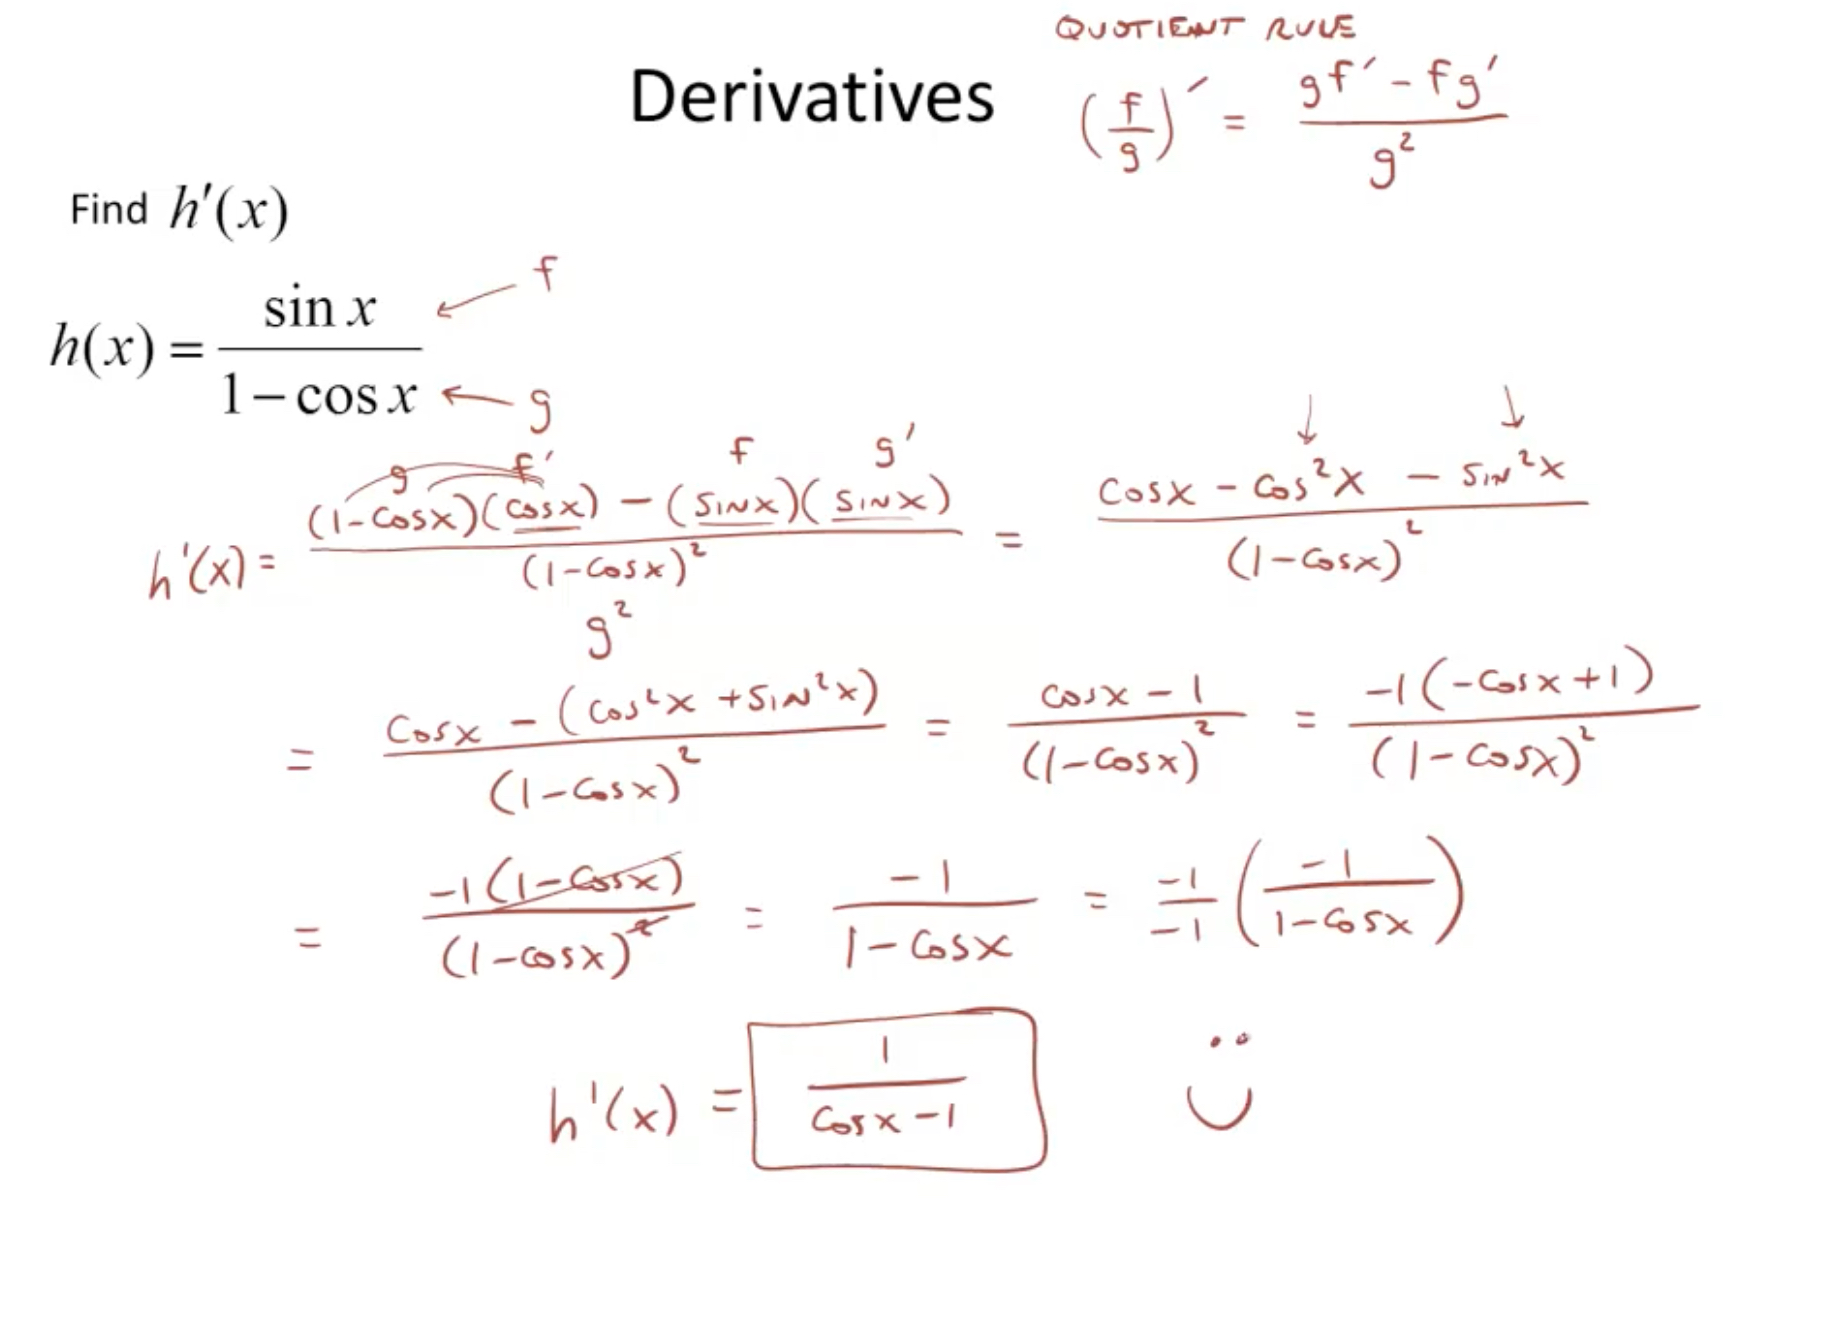 QUOTIENT RULE
Derivatives (f/g)′ = (gf′ - fg′)/g²
Find h′(x)
f
h(x) = sin x/(1 − cos x)
g
g f′ f g′
h'(x) = ((1-cosx)(cosx) - (sinx)(sinx))/(1-cosx)² = (cosx - cos²x - sin²x)/(1-cosx)²
g²
= (cosx - (cos²x + sin²x))/(1-cosx)² = (cosx - 1)/(1-cosx)² = -1(-cosx+1)/(1-cosx)²
= -1(1-cosx)/(1-cosx)² = -1/(1-cosx) = -1/-1 (-1/(1-cosx))
h'(x) = 1/(cosx - 1)